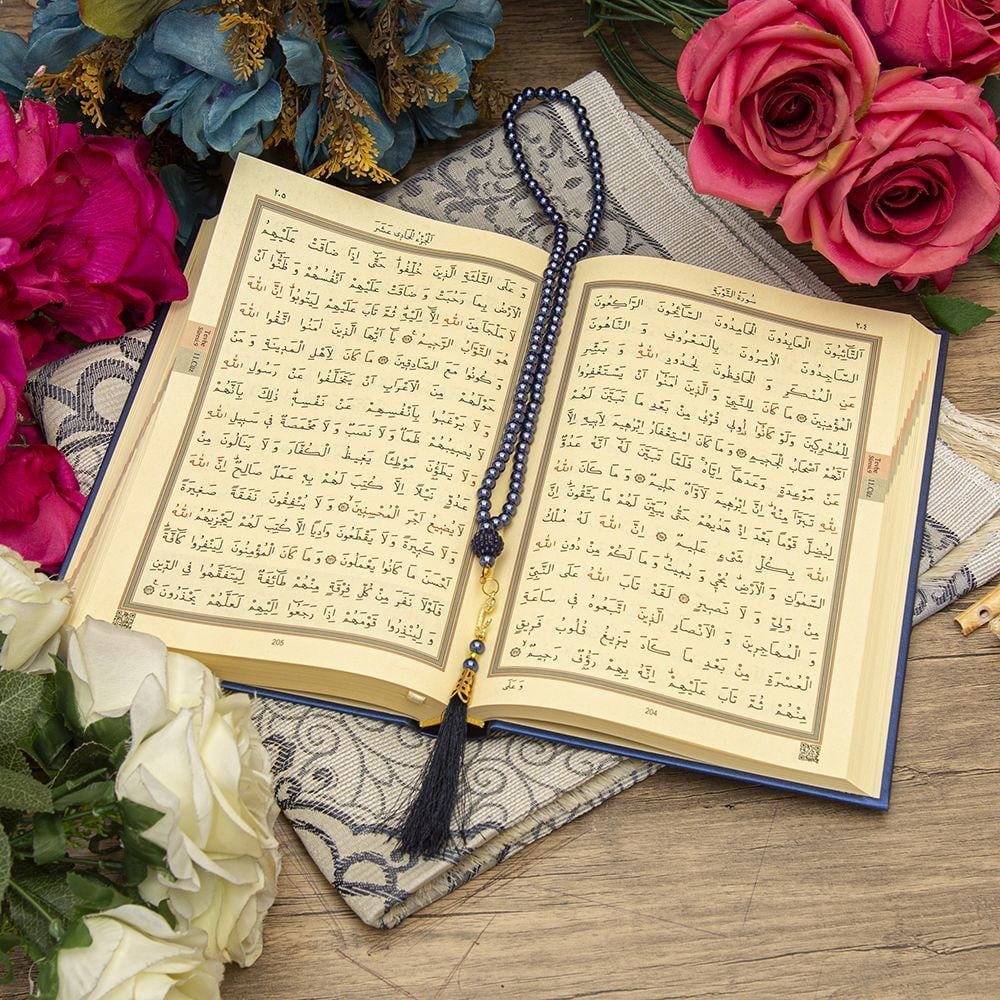 سُورَةُ التَّوْبَةِ
٢٠٤
اَلتَّٓائِبُونَ الْعَابِدُونَ الْحَامِدُونَ السَّٓائِحُونَ الرَّاكِعُونَ
السَّاجِدُونَ الْاٰمِرُونَ بِالْمَعْرُوفِ وَ النَّاهُونَ
عَنِ الْمُنْكَرِ وَ الْحَافِظُونَ لِحُدُودِ اللّٰهِ وَ بَشِّرِ
الْمُؤْمِنِينَ ۝ مَا كَانَ لِلنَّبِيِّ وَ الَّذِينَ اٰمَنُٓوا اَنْ يَسْتَغْفِرُوا
لِلْمُشْرِكِينَ وَلَوْ كَانُٓوا اُولِي قُرْبٰى مِنْ بَعْدِ مَا تَبَيَّنَ لَهُمْ
اَنَّهُمْ اَصْحَابُ الْجَحِيمِ ۝ وَ مَا كَانَ اسْتِغْفَارُ اِبْرٰهِيمَ لِاَبِيهِ اِلَّا
عَنْ مَوْعِدَةٍ وَعَدَهَٓا اِيَّاهُۚ فَلَمَّا تَبَيَّنَ لَهُٓ اَنَّهُ عَدُوٌّ
لِلّٰهِ تَبَرَّاَ مِنْهُۜ اِنَّ اِبْرٰهِيمَ لَاَوَّاهٌ حَلِيمٌ ۝ وَ مَا كَانَ اللّٰهُ
لِيُضِلَّ قَوْمًا بَعْدَ اِذْ هَدٰيهُمْ حَتّٰى يُبَيِّنَ لَهُمْ مَا يَتَّقُونَۜ اِنَّ
اللّٰهَ بِكُلِّ شَيْءٍ عَلِيمٌ ۝ اِنَّ اللّٰهَ لَهُ مُلْكُ
السَّمٰوَاتِ وَ الْاَرْضِۜ يُحْيِي وَ يُمِيتُۜ وَ مَا لَكُمْ مِنْ دُونِ اللّٰهِ
مِنْ وَلِيٍّ وَ لَا نَصِيرٍ ۝ لَقَدْ تَابَ اللّٰهُ عَلَى النَّبِيِّ
وَ الْمُهَاجِرِينَ وَ الْاَنْصَارِ الَّذِينَ اتَّبَعُوهُ فِي سَاعَةِ
الْعُسْرَةِ مِنْ بَعْدِ مَا كَادَ يَزِيغُ قُلُوبُ فَرِيقٍ
مِنْهُمْ ثُمَّ تَابَ عَلَيْهِمْۜ اِنَّهُ بِهِمْ رَؤُفٌ رَحِيمٌ ۝
وَ عَلَى
204
Tevbe
Sûresi 9
11.Cüz
اَلْجُزْءُ الْحَادِي عَشَرَ
٢٠٥
وَ عَلَى الثَّلٰثَةِ الَّذِينَ خُلِّفُواۜ حَتّٰٓى اِذَا ضَاقَتْ عَلَيْهِمُ
الْاَرْضُ بِمَا رَحُبَتْ وَ ضَاقَتْ عَلَيْهِمْ اَنْفُسُهُمْ وَ ظَنُّٓوا اَنْ
لَا مَلْجَاَ مِنَ اللّٰهِ اِلَّٓا اِلَيْهِۜ ثُمَّ تَابَ عَلَيْهِمْ لِيَتُوبُواۜ اِنَّ اللّٰهَ
هُوَ التَّوَّابُ الرَّحِيمُ ۝ يَٓا اَيُّهَا الَّذِينَ اٰمَنُوا اتَّقُوا اللّٰهَ
وَ كُونُوا مَعَ الصَّادِقِينَ ۝ مَا كَانَ لِاَهْلِ الْمَدِينَةِ وَ مَنْ
حَوْلَهُمْ مِنَ الْاَعْرَابِ اَنْ يَتَخَلَّفُوا عَنْ رَسُولِ اللّٰهِ
وَ لَا يَرْغَبُوا بِاَنْفُسِهِمْ عَنْ نَفْسِهِۜ ذٰلِكَ بِاَنَّهُمْ
لَا يُصِيبُهُمْ ظَمَاٌ وَ لَا نَصَبٌ وَ لَا مَخْمَصَةٌ فِي سَبِيلِ اللّٰهِ
وَ لَا يَطَؤُنَ مَوْطِئًا يَغِيظُ الْكُفَّارَ وَ لَا يَنَالُونَ مِنْ
عَدُوٍّ نَيْلًا اِلَّا كُتِبَ لَهُمْ بِهِ عَمَلٌ صَالِحٌۜ اِنَّ اللّٰهَ
لَا يُضِيعُ اَجْرَ الْمُحْسِنِينَ ۝ وَ لَا يُنْفِقُونَ نَفَقَةً صَغِيرَةً
وَ لَا كَبِيرَةً وَ لَا يَقْطَعُونَ وَادِيًا اِلَّا كُتِبَ لَهُمْ لِيَجْزِيَهُمُ اللّٰهُ
اَحْسَنَ مَا كَانُوا يَعْمَلُونَ ۝ وَ مَا كَانَ الْمُؤْمِنُونَ لِيَنْفِرُوا كَٓافَّةًۜ
فَلَوْلَا نَفَرَ مِنْ كُلِّ فِرْقَةٍ مِنْهُمْ طَٓائِفَةٌ لِيَتَفَقَّهُوا فِي الدِّينِ
وَ لِيُنْذِرُوا قَوْمَهُمْ اِذَا رَجَعُٓوا اِلَيْهِمْ لَعَلَّهُمْ يَحْذَرُونَ ۝
205
Tevbe
Sûresi 9
11.Cüz